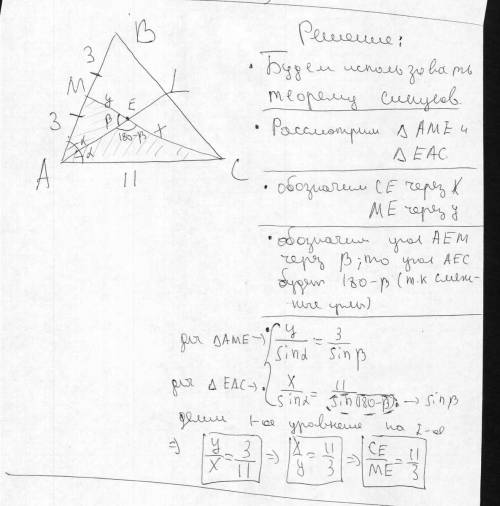 B
3
M
y
E
L
3
β
x
180-β
α
α
A
11
C
Решение:
• Будем использовать
теорему синусов
• Рассмотрим Δ AME и
Δ EAC
• обозначим CE через X
ME через y
• обозначим угол AEM
через β; то угол AEC
будет 180-β (т.к смеж-
ные углы)
для ΔAME→ y/sinα = 3/sinβ
для Δ EAC→ x/sinα = 11/sin(180-β) → sinβ
делим 1-ое уравнение на 2-ое
⇒ y/x = 3/11 ⇒ x/y = 11/3 ⇒ CE/ME = 11/3